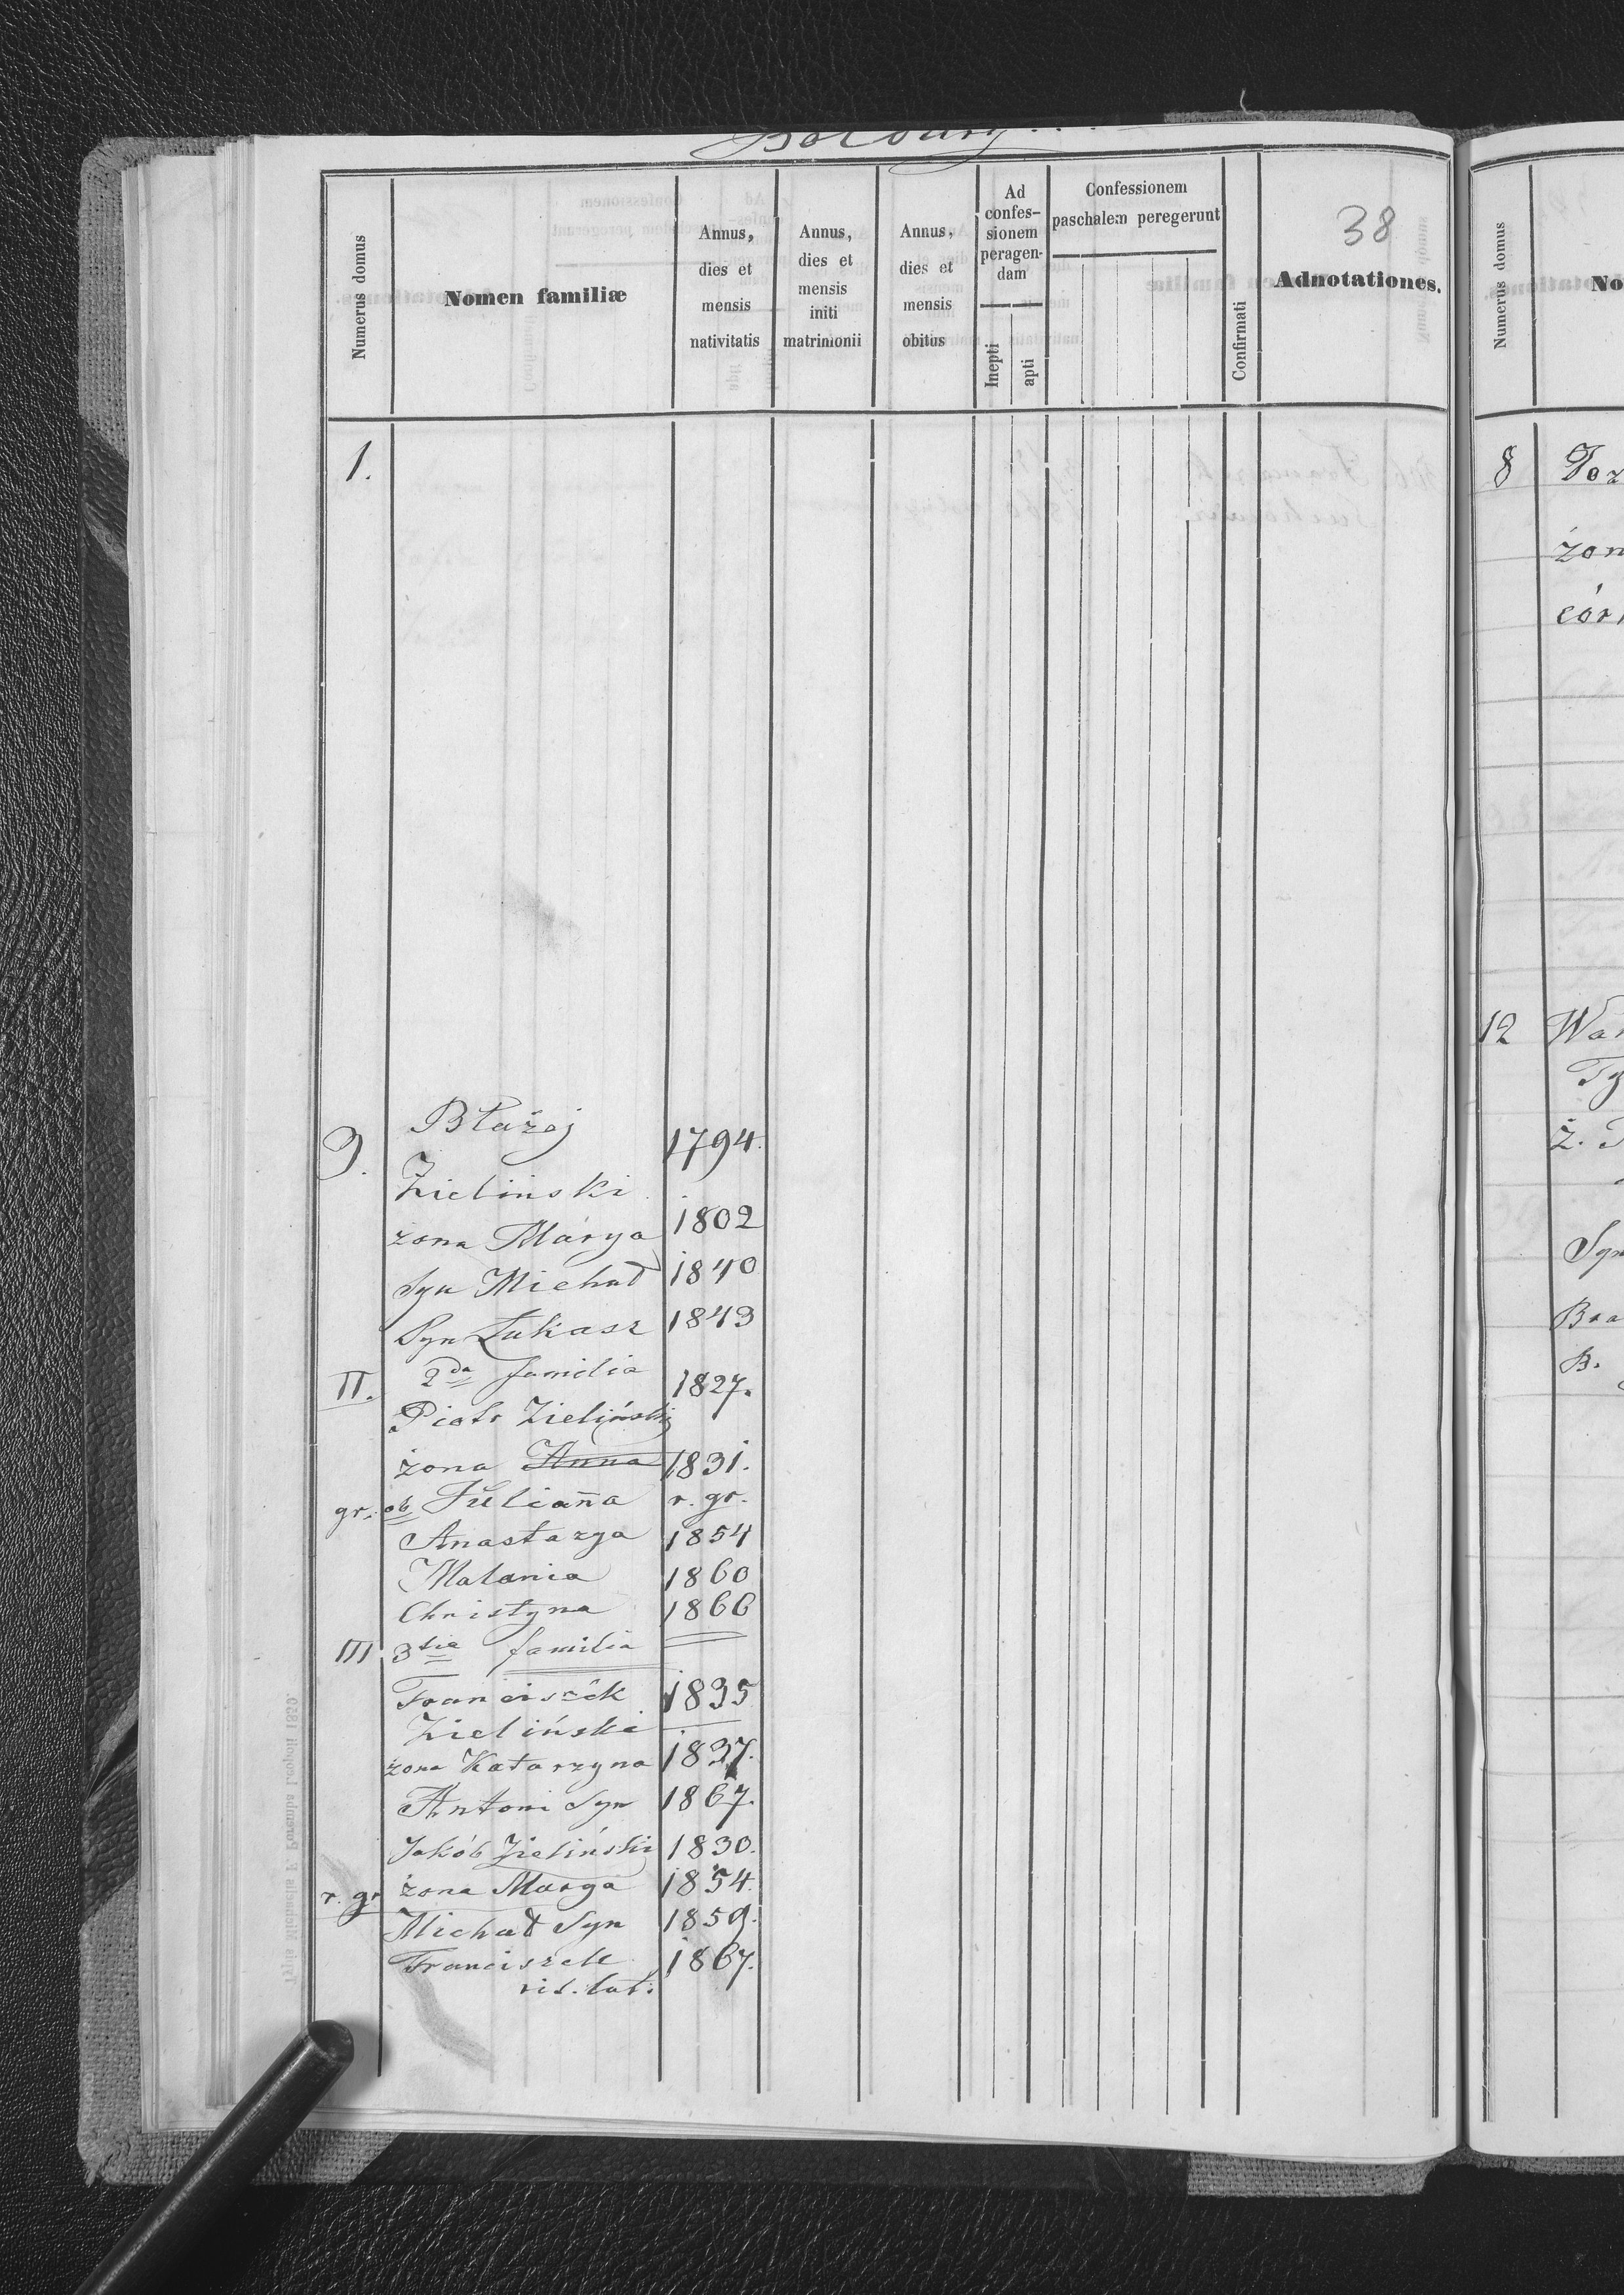 38
Numerus domus
Nomen familiæ
Annus,
dies et
mensis
nativitatis
Annus,
dies et
mensis
initi
matrimonii
Annus,
dies et
mensis
obitus
Ad
confes-
sionem
peragen-
dam
Inepti
apti
Confessionem
paschalem peregerunt
Confirmati
Adnotationes.
1.
9. Błażej 1794.
Zielinski
żona Marya 1802
Syn Michał 1840
Syn Łukasz 1843
II. 2da familia 1827.
Piotr Zieliński
żona Anna 1831.
gr. ob Julianna r. gr.
Anastazya 1854
Malania 1860
Christyna 1866
III 3tia familia
Franciszek 1835
Zieliński
żona Katarzyna 1837.
Antoni Syn 1867.
Jakób Zieliński 1830.
r. gr żona Marya 1834.
Michał Syn 1859.
Franciszek 1867.
rit. lat.
Typis Michaelis F. Poremba Leopoli 1859.
Numerus domus
No
8
żon
cór
12 War
Ty
ż.
Syn
Bra
B.